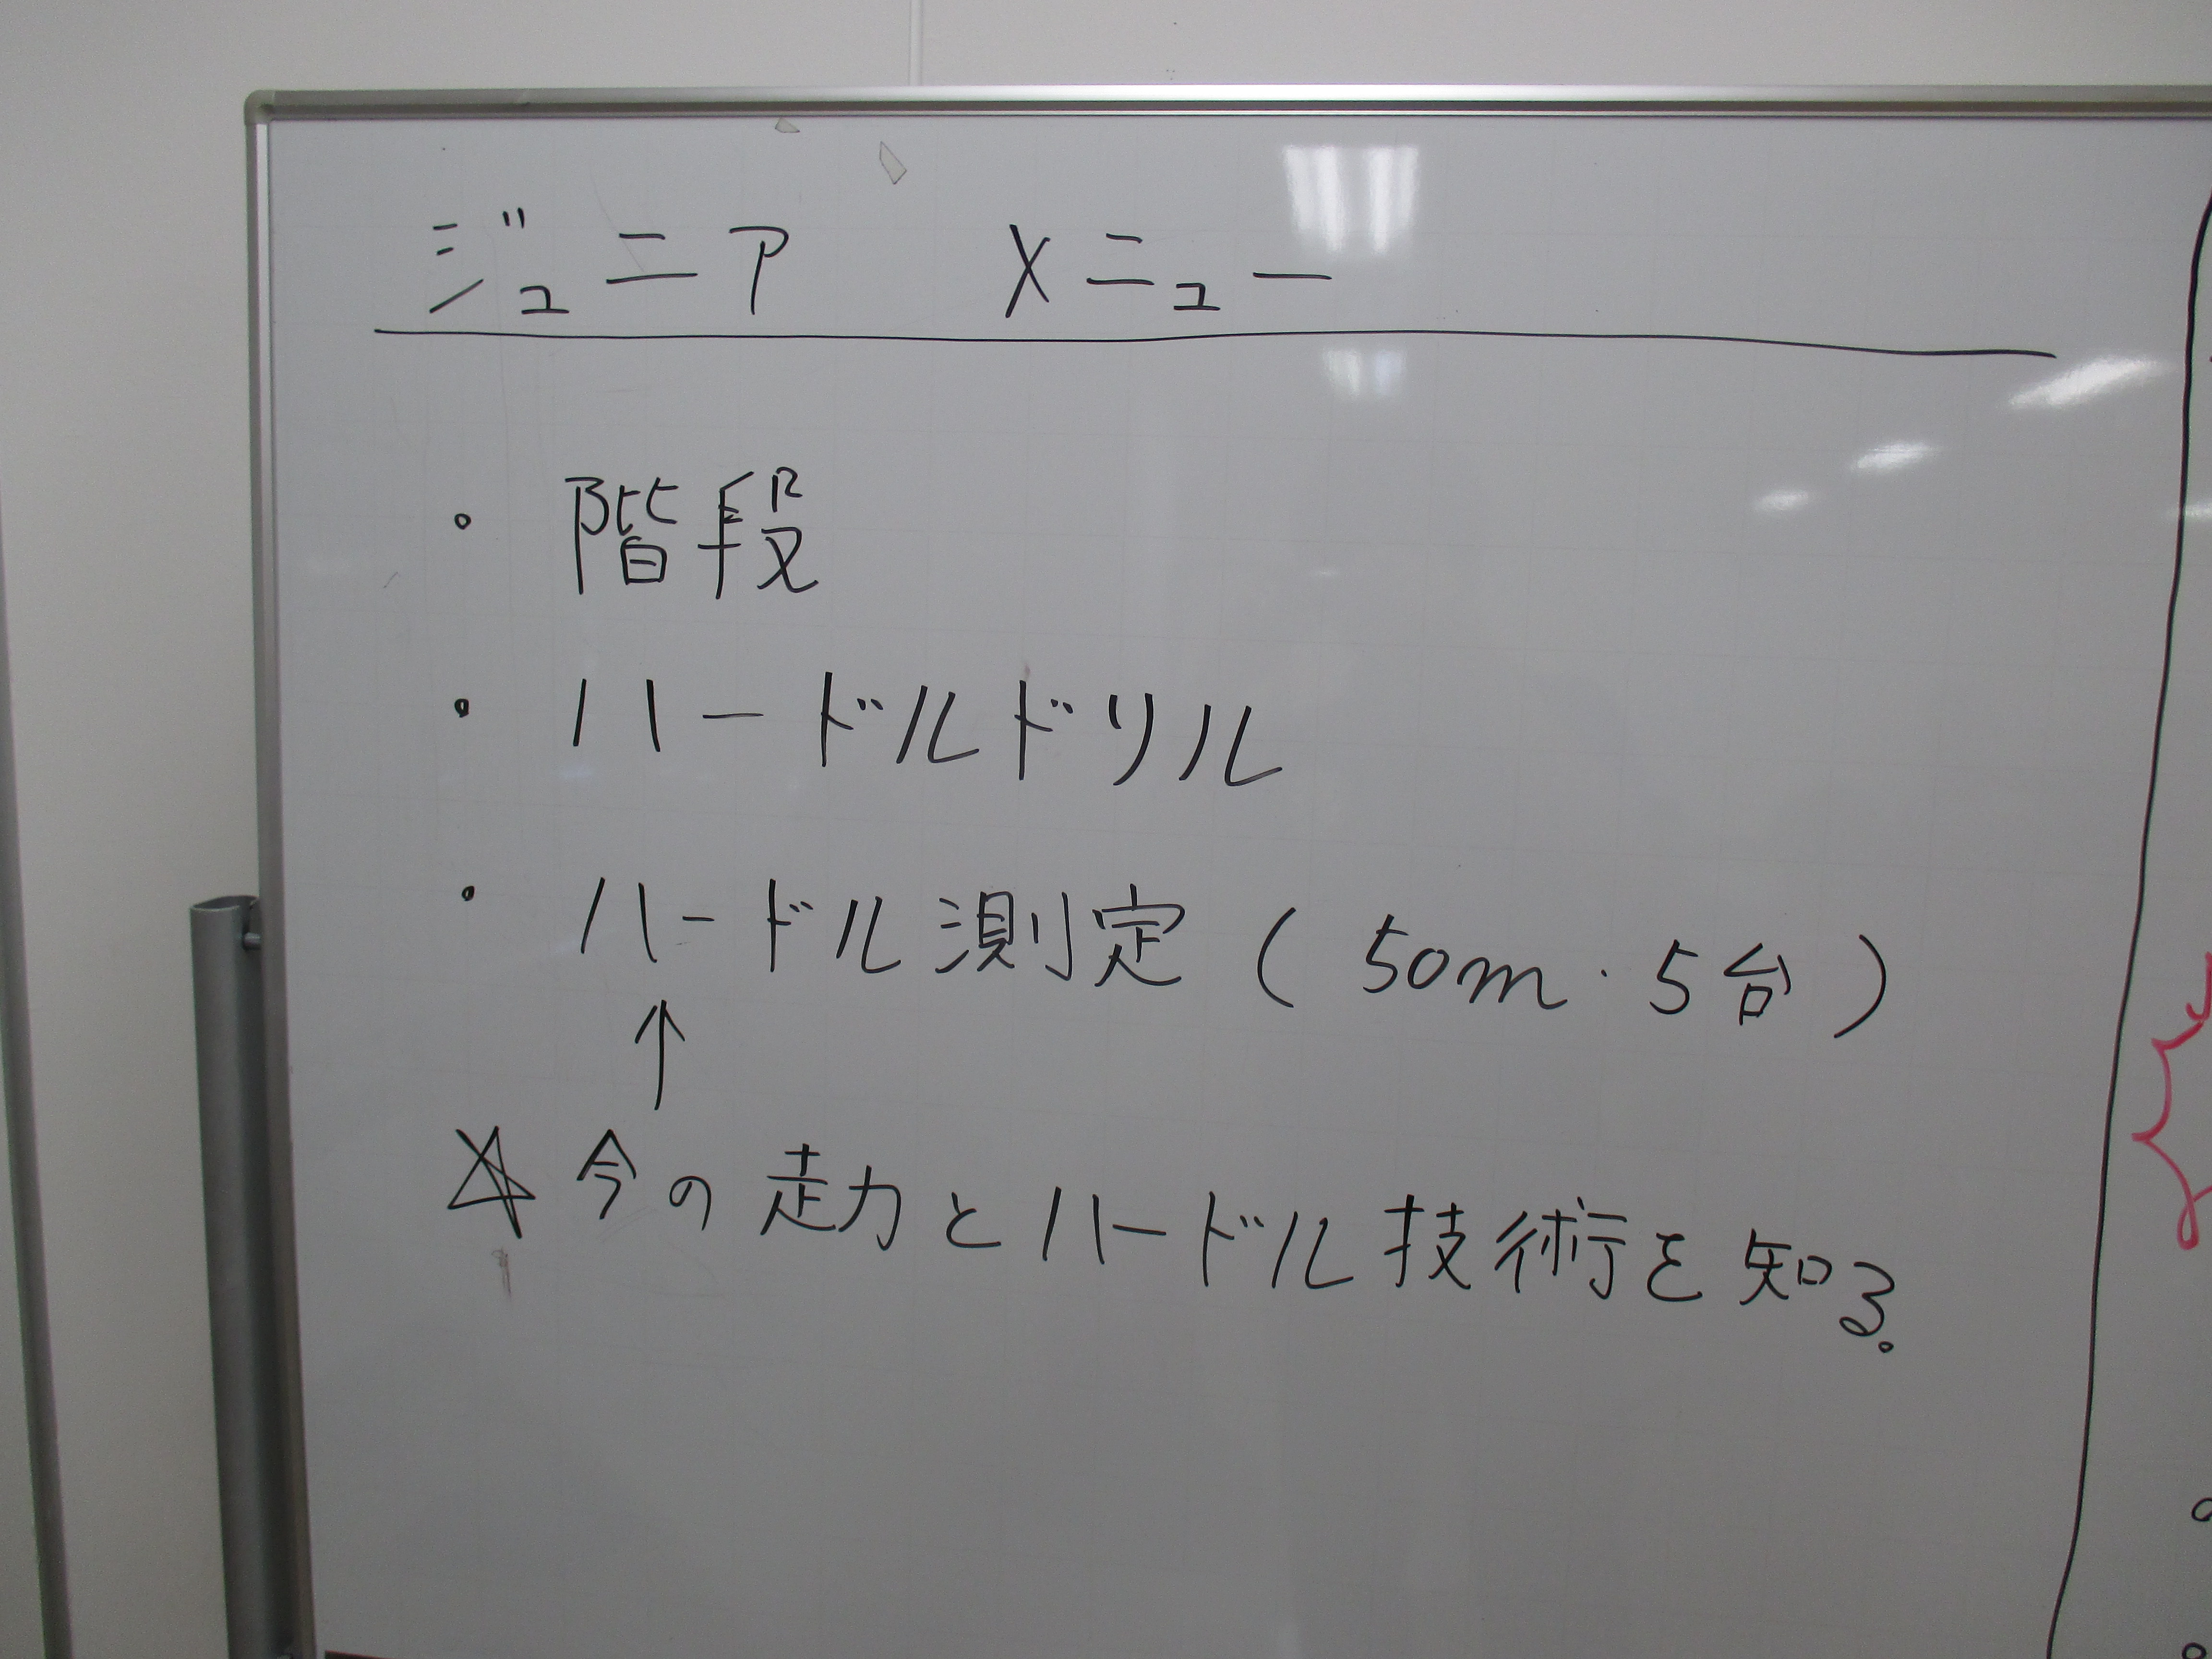 ジュニア メニュー
・ 階段
・ ハードルドリル
・ ハードル測定 ( 50m・5台 )
↑
☆ 今の走力とハードル技術を知る。